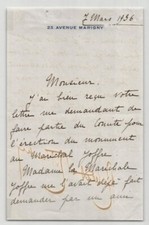 7 Mars 1936
AVENUE MARIGNY
Monsieur
J'ai bien reçu votre
lettre me demandant de
faire partie du Comité pour
l'érection du monument
au Maréchal Joffre
Madame la Maréchale
Joffre me l'avait déjà fait
demander par un ami